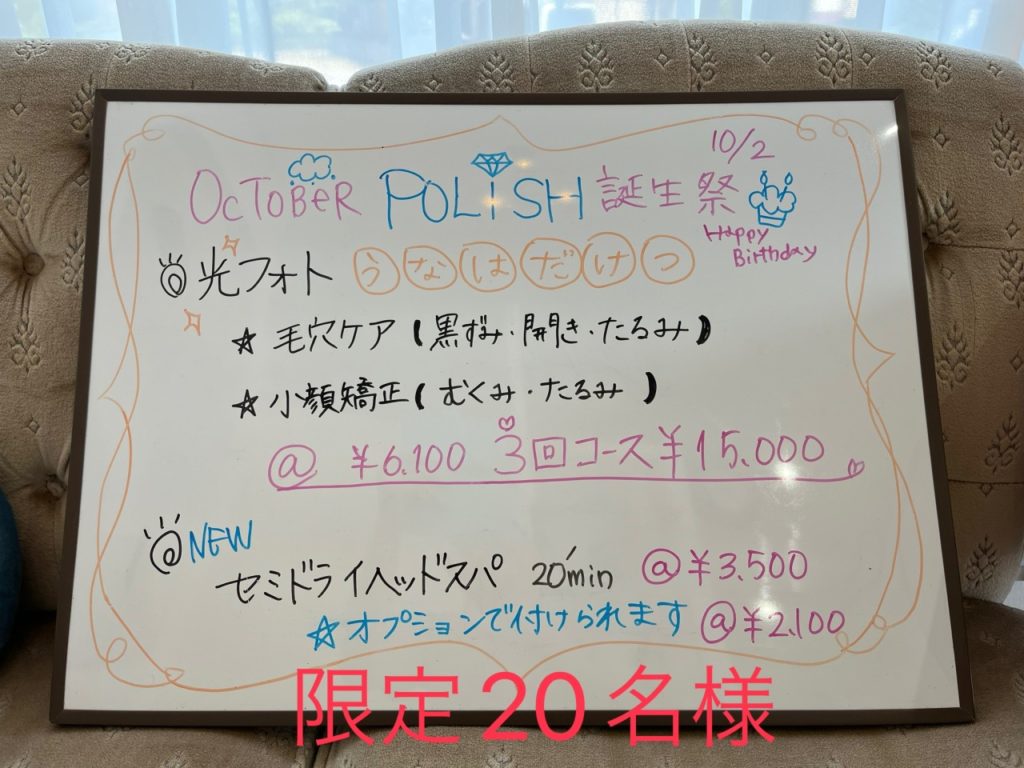 10/2
OCTOBER POLiSH 誕生祭
Happy
Birthday
◎光フォト うなはだけつ
☆ 毛穴ケア(黒ずみ・開き・たるみ)
☆ 小顔矯正(むくみ・たるみ)
@ ¥6.100 3回コース¥15.000
@NEW
セミドライヘッドスパ 20min @¥3.500
☆オプションで付けられます @¥2.100
限定20名様